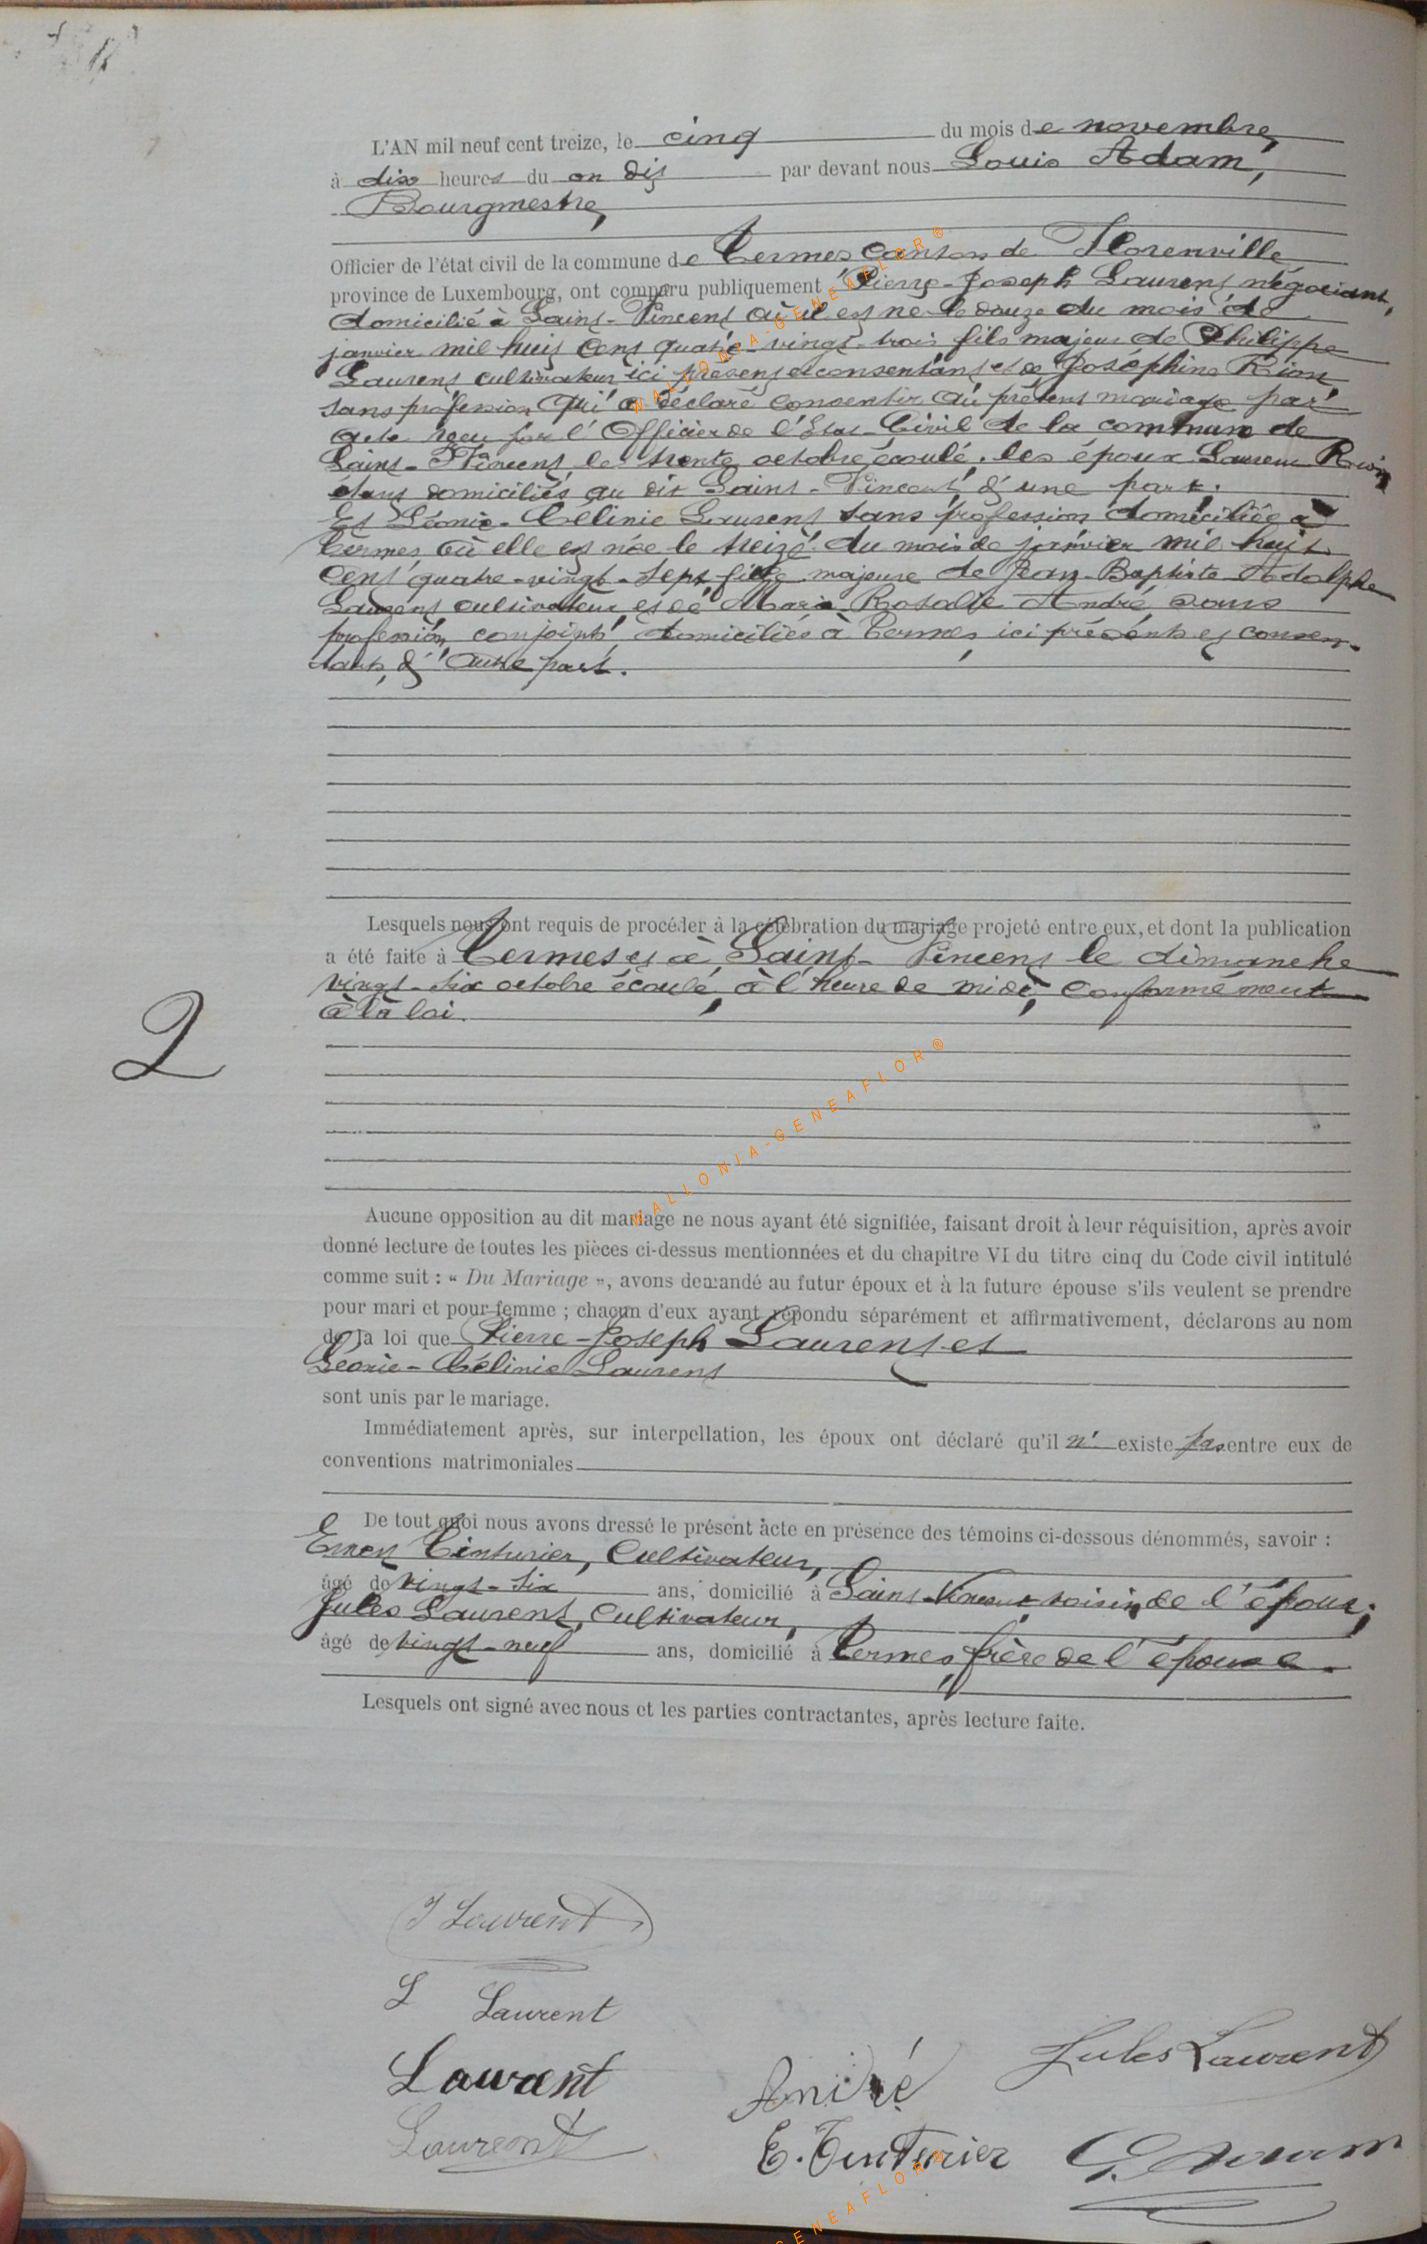 L'AN mil neuf cent treize, le cinq du mois de novembre,
à dix heures du on dit par devant nous Louis Adam,
Bourgmestre,
Officier de l'état civil de la commune de Termes canton de Florenville
province de Luxembourg, ont comparu publiquement Pierre-Joseph Laurent négociant,
domicilié à Saint-Vincent où il est né le douze du mois de
janvier mil huit cent quatre-vingt-trois fils majeur de Philippe
Laurent cultivateur ici présent et consentant et de Joséphine Rion
sans profession qui a déclaré consentir au présent mariage par
acte reçu par l'Officier de l'Etat-Civil de la commune de
Saint-Vincent le trente octobre écoulé, les époux Laurent Rion
étant domiciliés au dit Saint-Vincent d'une part.
Et Léonie-Célinie Laurent sans profession domiciliée à
Termes où elle est née le treize du mois de janvier mil huit
cent quatre-vingt-sept fille majeure de Jean-Baptiste Adolphe
Laurent cultivateur, et de Marie Rosalie André sans
profession conjoints domiciliés à Termes, ici présents et consen-
tants, d'autre part.
Lesquels nous ont requis de procéder à la célébration du mariage projeté entre eux, et dont la publication
a été faite à Termes et à Saint-Vincent le dimanche
vingt-six octobre écoulé, à l'heure de midi, conformément
à la loi.
2
Aucune opposition au dit mariage ne nous ayant été signifiée, faisant droit à leur réquisition, après avoir
donné lecture de toutes les pièces ci-dessus mentionnées et du chapitre VI du titre cinq du Code civil intitulé
comme suit : « Du Mariage », avons demandé au futur époux et à la future épouse s'ils veulent se prendre
pour mari et pour femme ; chacun d'eux ayant répondu séparément et affirmativement, déclarons au nom
de la loi que Pierre-Joseph Laurent et
Léonie-Célinie Laurent
sont unis par le mariage.
Immédiatement après, sur interpellation, les époux ont déclaré qu'il n' existe pas entre eux de
conventions matrimoniales
De tout quoi nous avons dressé le présent acte en présence des témoins ci-dessous dénommés, savoir :
Tinturier, Cultivateur,
âgé de vingt-six ans, domicilié à Saint-Vincent voisin de l'époux;
Jules Laurent, Cultivateur,
âgé de vingt-neuf ans, domicilié à Termes, frère de l'épouse.
Lesquels ont signé avec nous et les parties contractantes, après lecture faite.
J Laurent
L Laurent
Laurent
André
Jules Laurent
Laurent
E. Tinturier
L. Adam
WALLONIA-GENEAFLOR®
WALLONIA-GENEAFLOR®
GENEAFLOR®